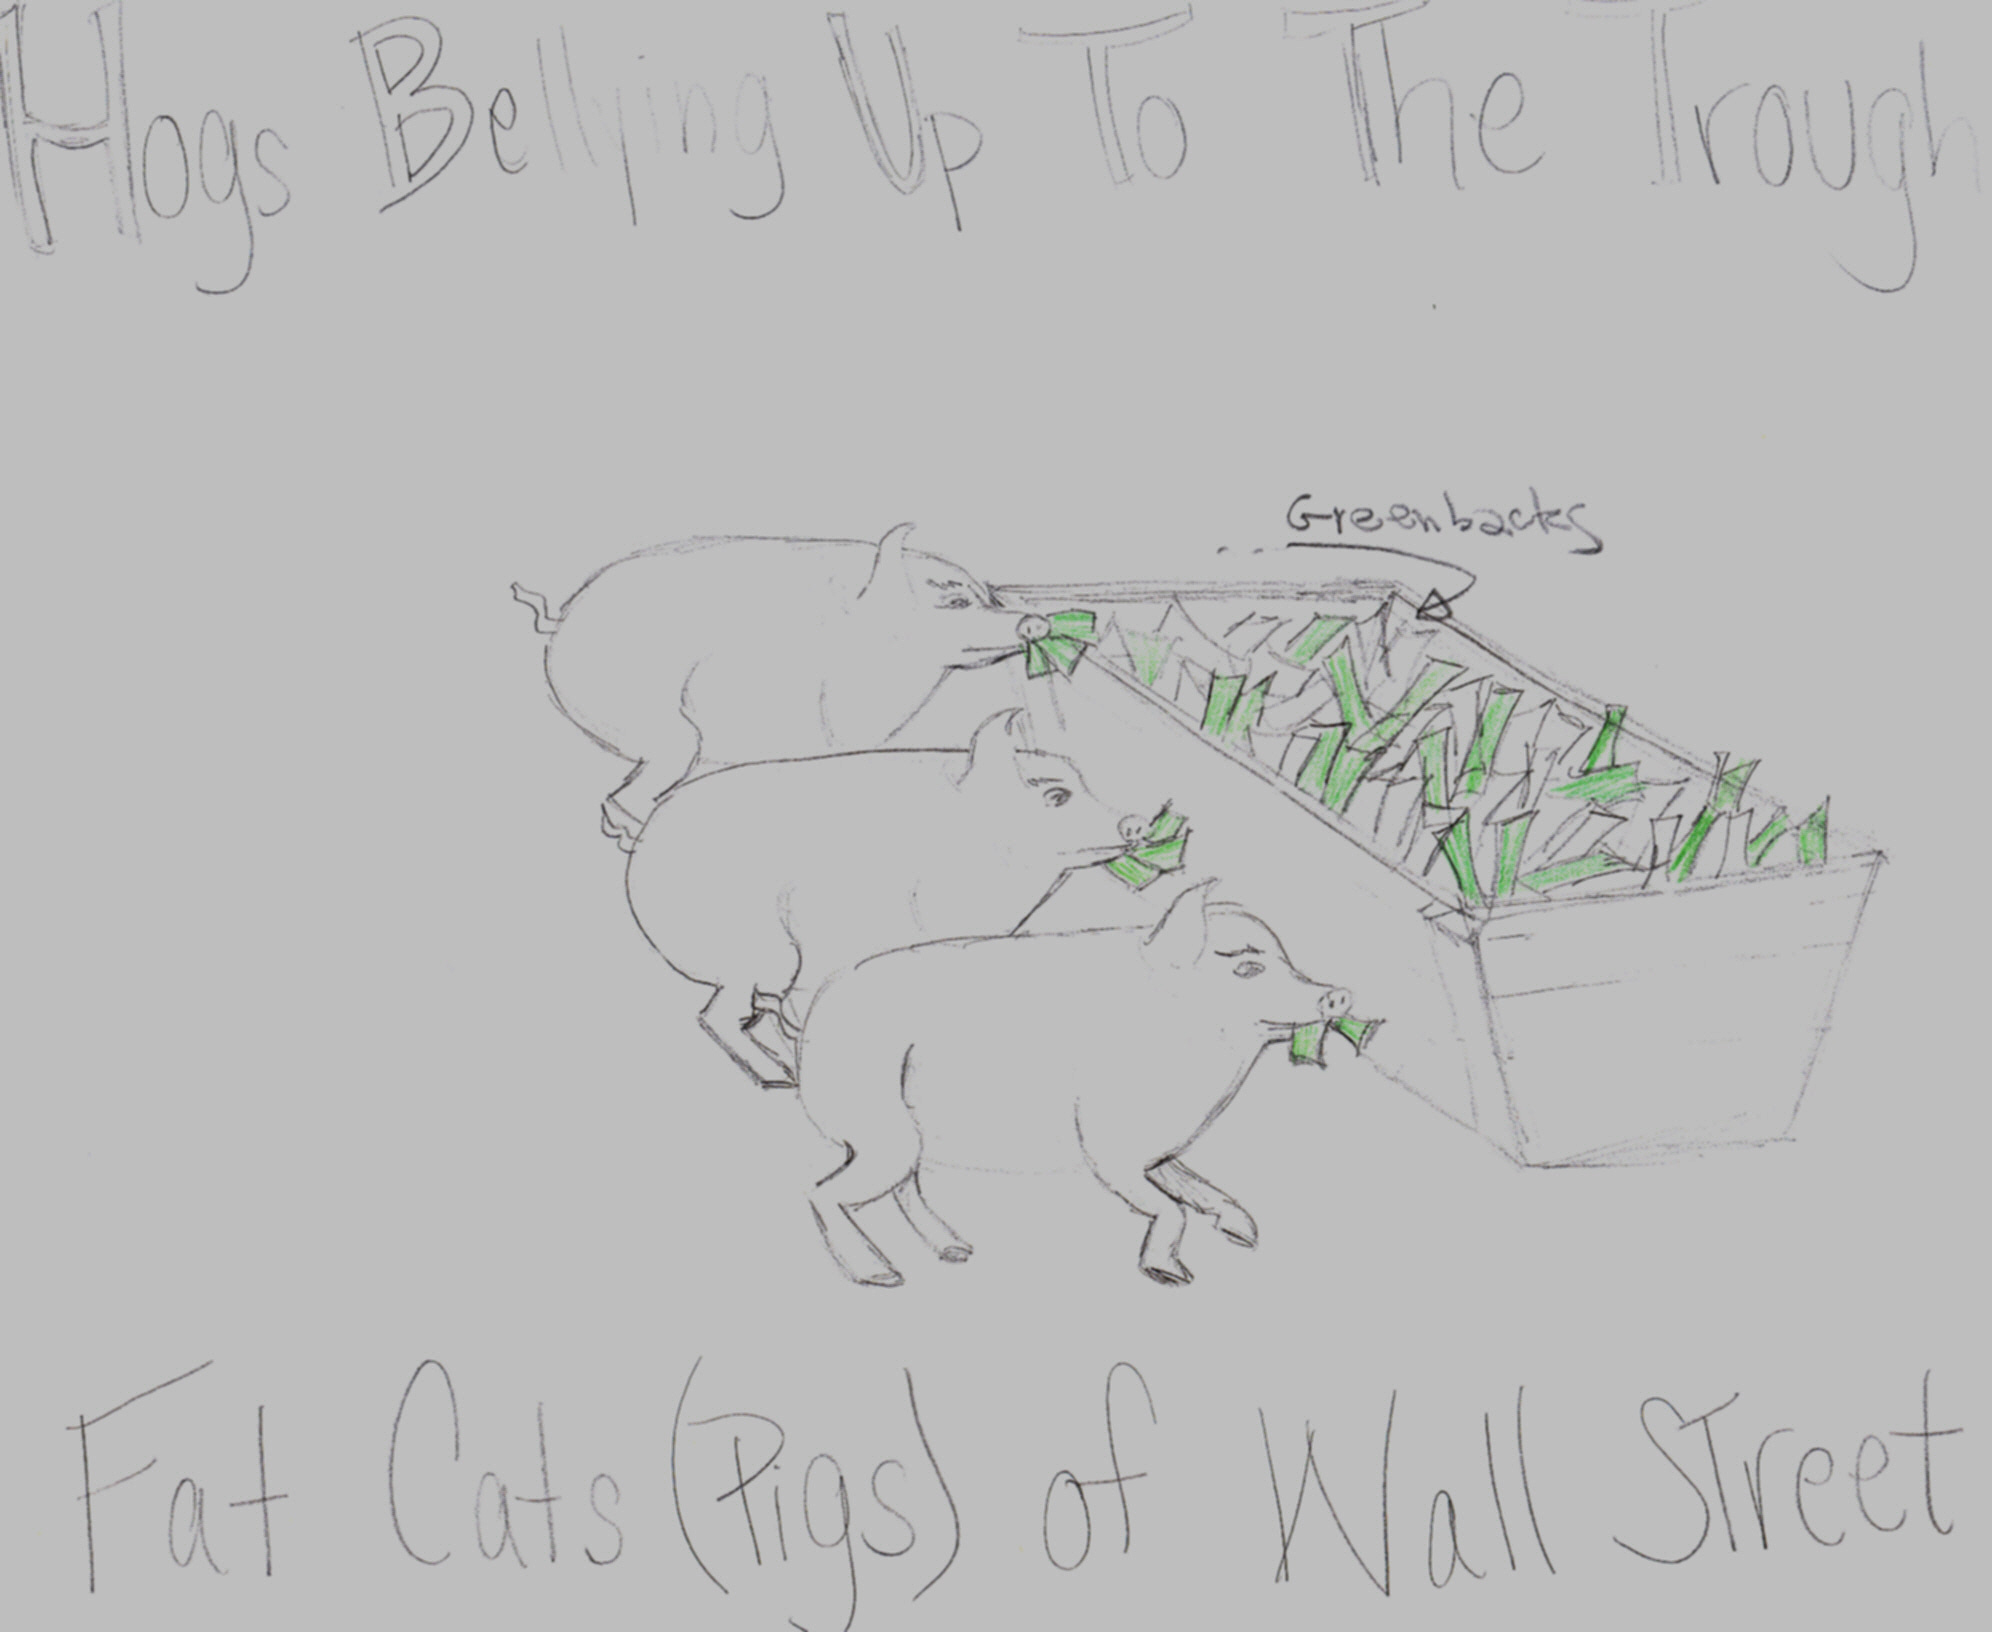 Hogs Bellying Up To The Trough
Greenbacks
Fat Cats (Pigs) of Wall Street